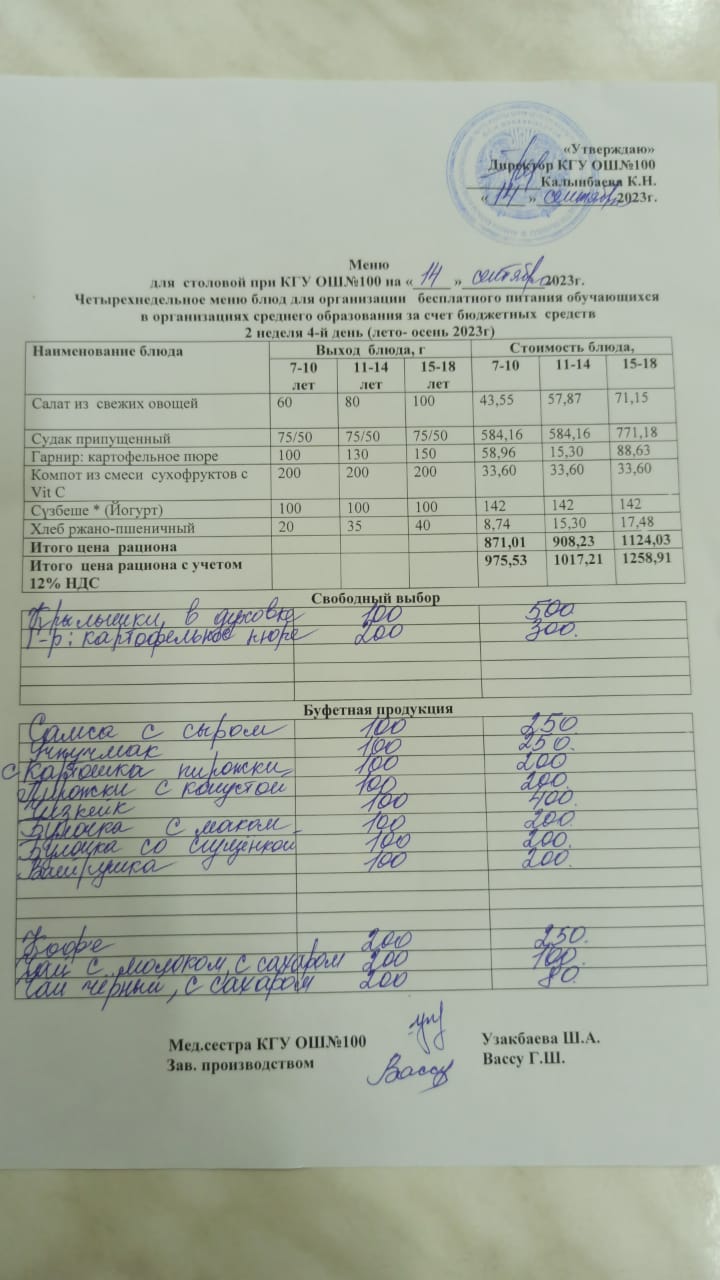 «Утверждаю»
Директор КГУ ОШ№100
Калынбаева К.Н.
« 14 » сентябрь 2023г.
Меню
для столовой при КГУ ОШ№100 на « 14 » сентябрь 2023г.
Четырехнедельное меню блюд для организации бесплатного питания обучающихся
в организациях среднего образования за счет бюджетных средств
2 неделя 4-й день (лето- осень 2023г)
Наименование блюда Выход блюда, г Стоимость блюда,
7-10 лет 11-14 лет 15-18 лет 7-10 11-14 15-18
Салат из свежих овощей 60 80 100 43,55 57,87 71,15
Судак припущенный 75/50 75/50 75/50 584,16 584,16 771,18
Гарнир: картофельное пюре 100 130 150 58,96 15,30 88,63
Компот из смеси сухофруктов с 200 200 200 33,60 33,60 33,60
Vit C
Сүзбеше * (Йогурт) 100 100 100 142 142 142
Хлеб ржано-пшеничный 20 35 40 8,74 15,30 17,48
Итого цена рациона 871,01 908,23 1124,03
Итого цена рациона с учетом 975,53 1017,21 1258,91
12% НДС
Свободный выбор
Крылышки в духовке 100 500
Г-р: картофельное пюре 200 300.
Буфетная продукция
Самса с сыром 100 250.
Учпучмак 100 250.
с картошка пирожки 100 200
Пирожки с копустой 100 200.
Чизкейк 100 400.
Булочка с маком 100 200
Булочка со сгущенкой 100 200.
Ватрушка 100 200.
Кофе 200 250.
Чай с молоком, с сахаром 200 100.
Чай черный, с сахаром 200 80.
Мед.сестра КГУ ОШ№100 Узакбаева Ш.А.
Зав. производством Вассу Вассу Г.Ш.